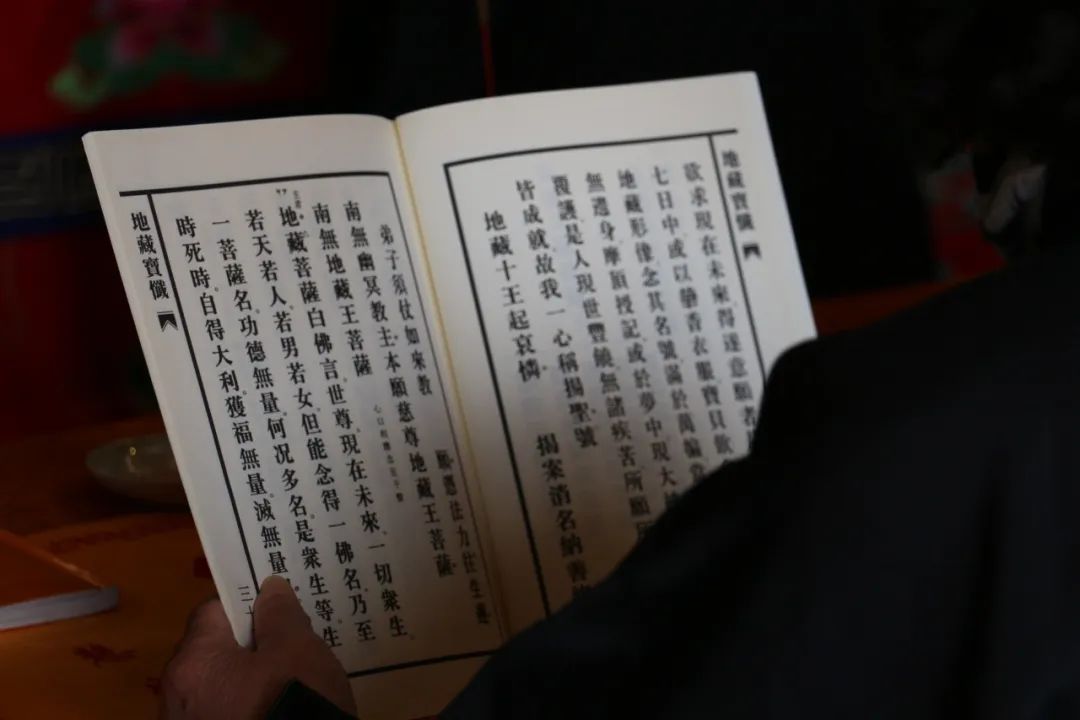 地藏寶懺
欲求現在未來得遂意願者
七日中或以諸香衣服寶貝飲
地藏形像念其名號滿於萬徧
無邊身摩頂授記或於夢中現大
覆護是人現世豐饒無諸疾苦所願
皆成就故我一心稱揚聖號
地藏十王起哀憐 揭案消名納善
弟子須仗如來教 願憑法力往生蓮
南無幽冥教主本願慈尊地藏王菩薩
南無地藏王菩薩
地藏菩薩白佛言。世尊。現在未來。一切衆生。
若天若人。若男若女。但能念得一佛名。乃至
一菩薩名。功德無量。何况多名。是衆生等。生
時死時。自得大利。獲福無量。滅無量
地藏寶懺
三十